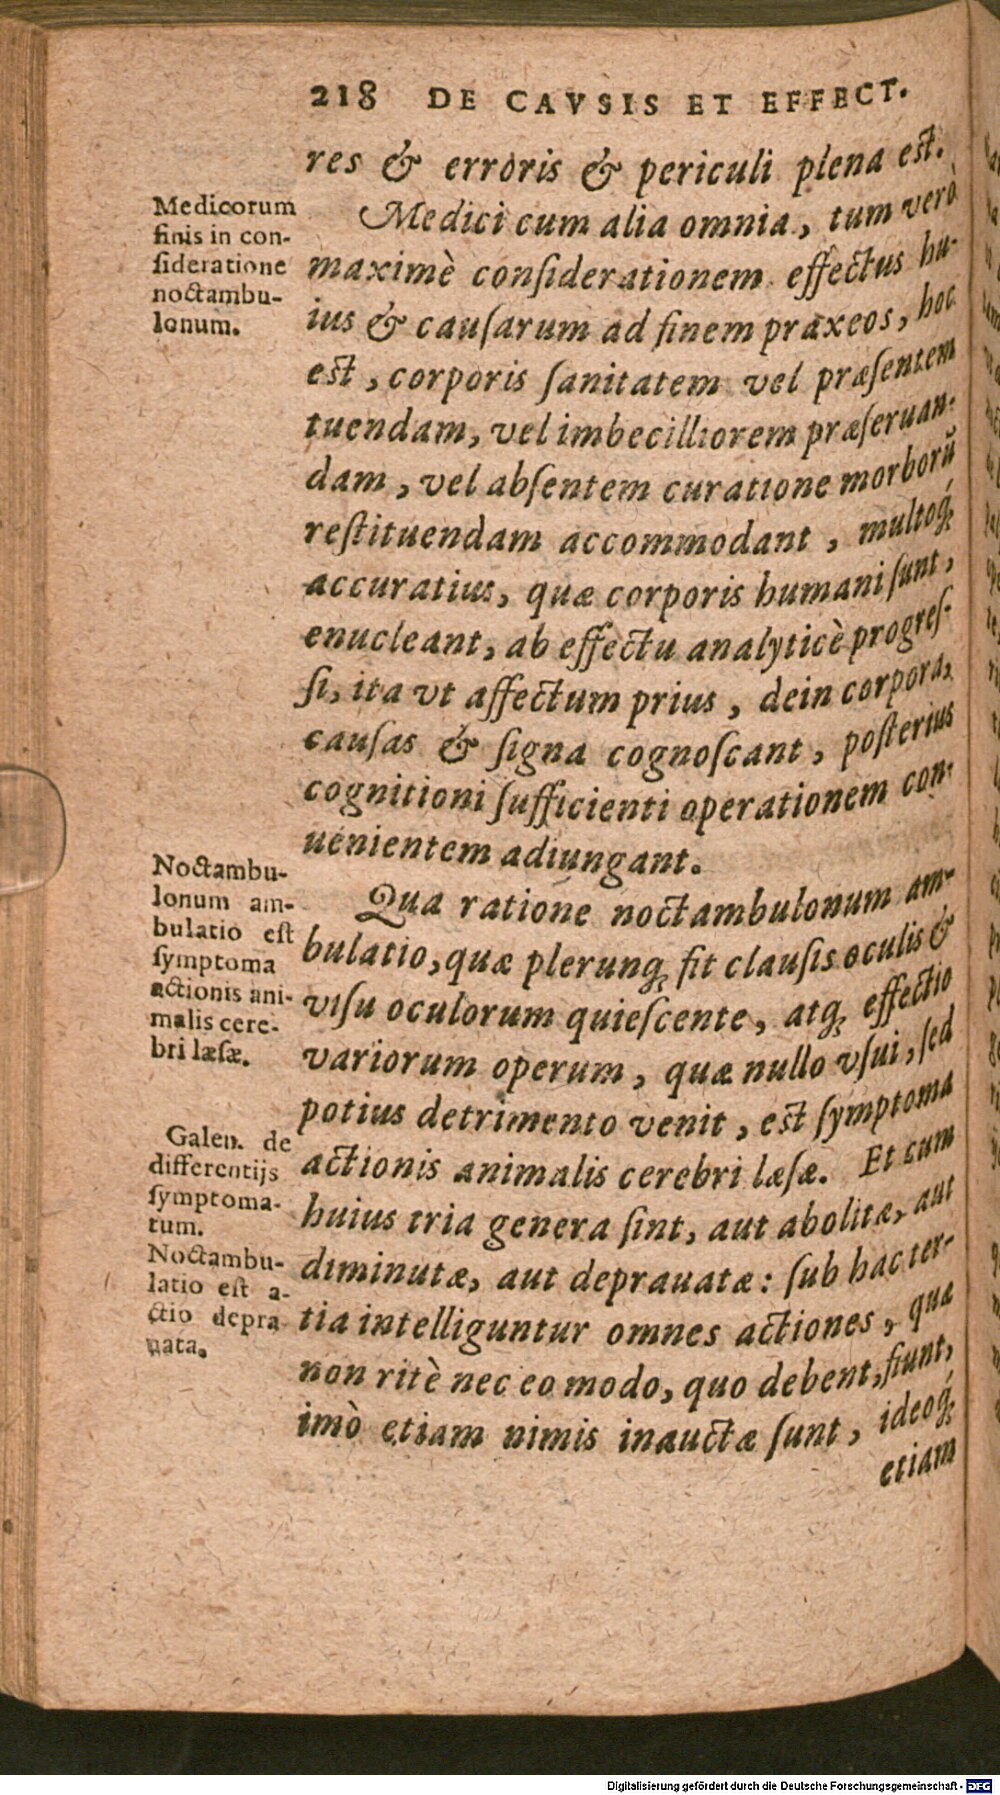 218 DE CAVSIS ET EFFECT.
res & erroris & periculi plena est.
Medicorum
finis in con-
sideratione
noctambu-
lonum.
Medici cum alia omnia, tum verò
maximè considerationem effectus hu-
ius & causarum ad finem praxeos, hoc
est, corporis sanitatem vel præsentem
tuendam, vel imbecilliorem præseruan-
dam, vel absentem curatione morborũ
restituendam accommodant, multoq;
accuratius, quæ corporis humani sunt,
enucleant, ab effectu analyticè progres-
si, ita vt affectum prius, dein corpora,
causas & signa cognoscant, posterius
cognitioni sufficienti operationem con-
uenientem adiungant.
Noctambu-
lonum am-
bulatio est
symptoma
actionis ani-
malis cere-
bri læsæ.
Qua ratione noctambulonum am-
bulatio, quæ plerunq; fit clausis oculis &
visu oculorum quiescente, atq; effectio
variorum operum, quæ nullo vsui, sed
potius detrimento venit, est symptoma
actionis animalis cerebri læsæ. Et cum
Galen. de
differentijs
symptoma-
tum.
huius tria genera sint, aut abolitæ, aut
diminutæ, aut deprauatæ: sub hac ter-
Noctambu-
latio est a-
ctio depra
uata.
tia intelliguntur omnes actiones, quæ
non ritè nec eo modo, quo debent, fiunt,
imò etiam nimis inauctæ sunt, ideoq;
etiam
Digitalisierung gefördert durch die Deutsche Forschungsgemeinschaft - DFG